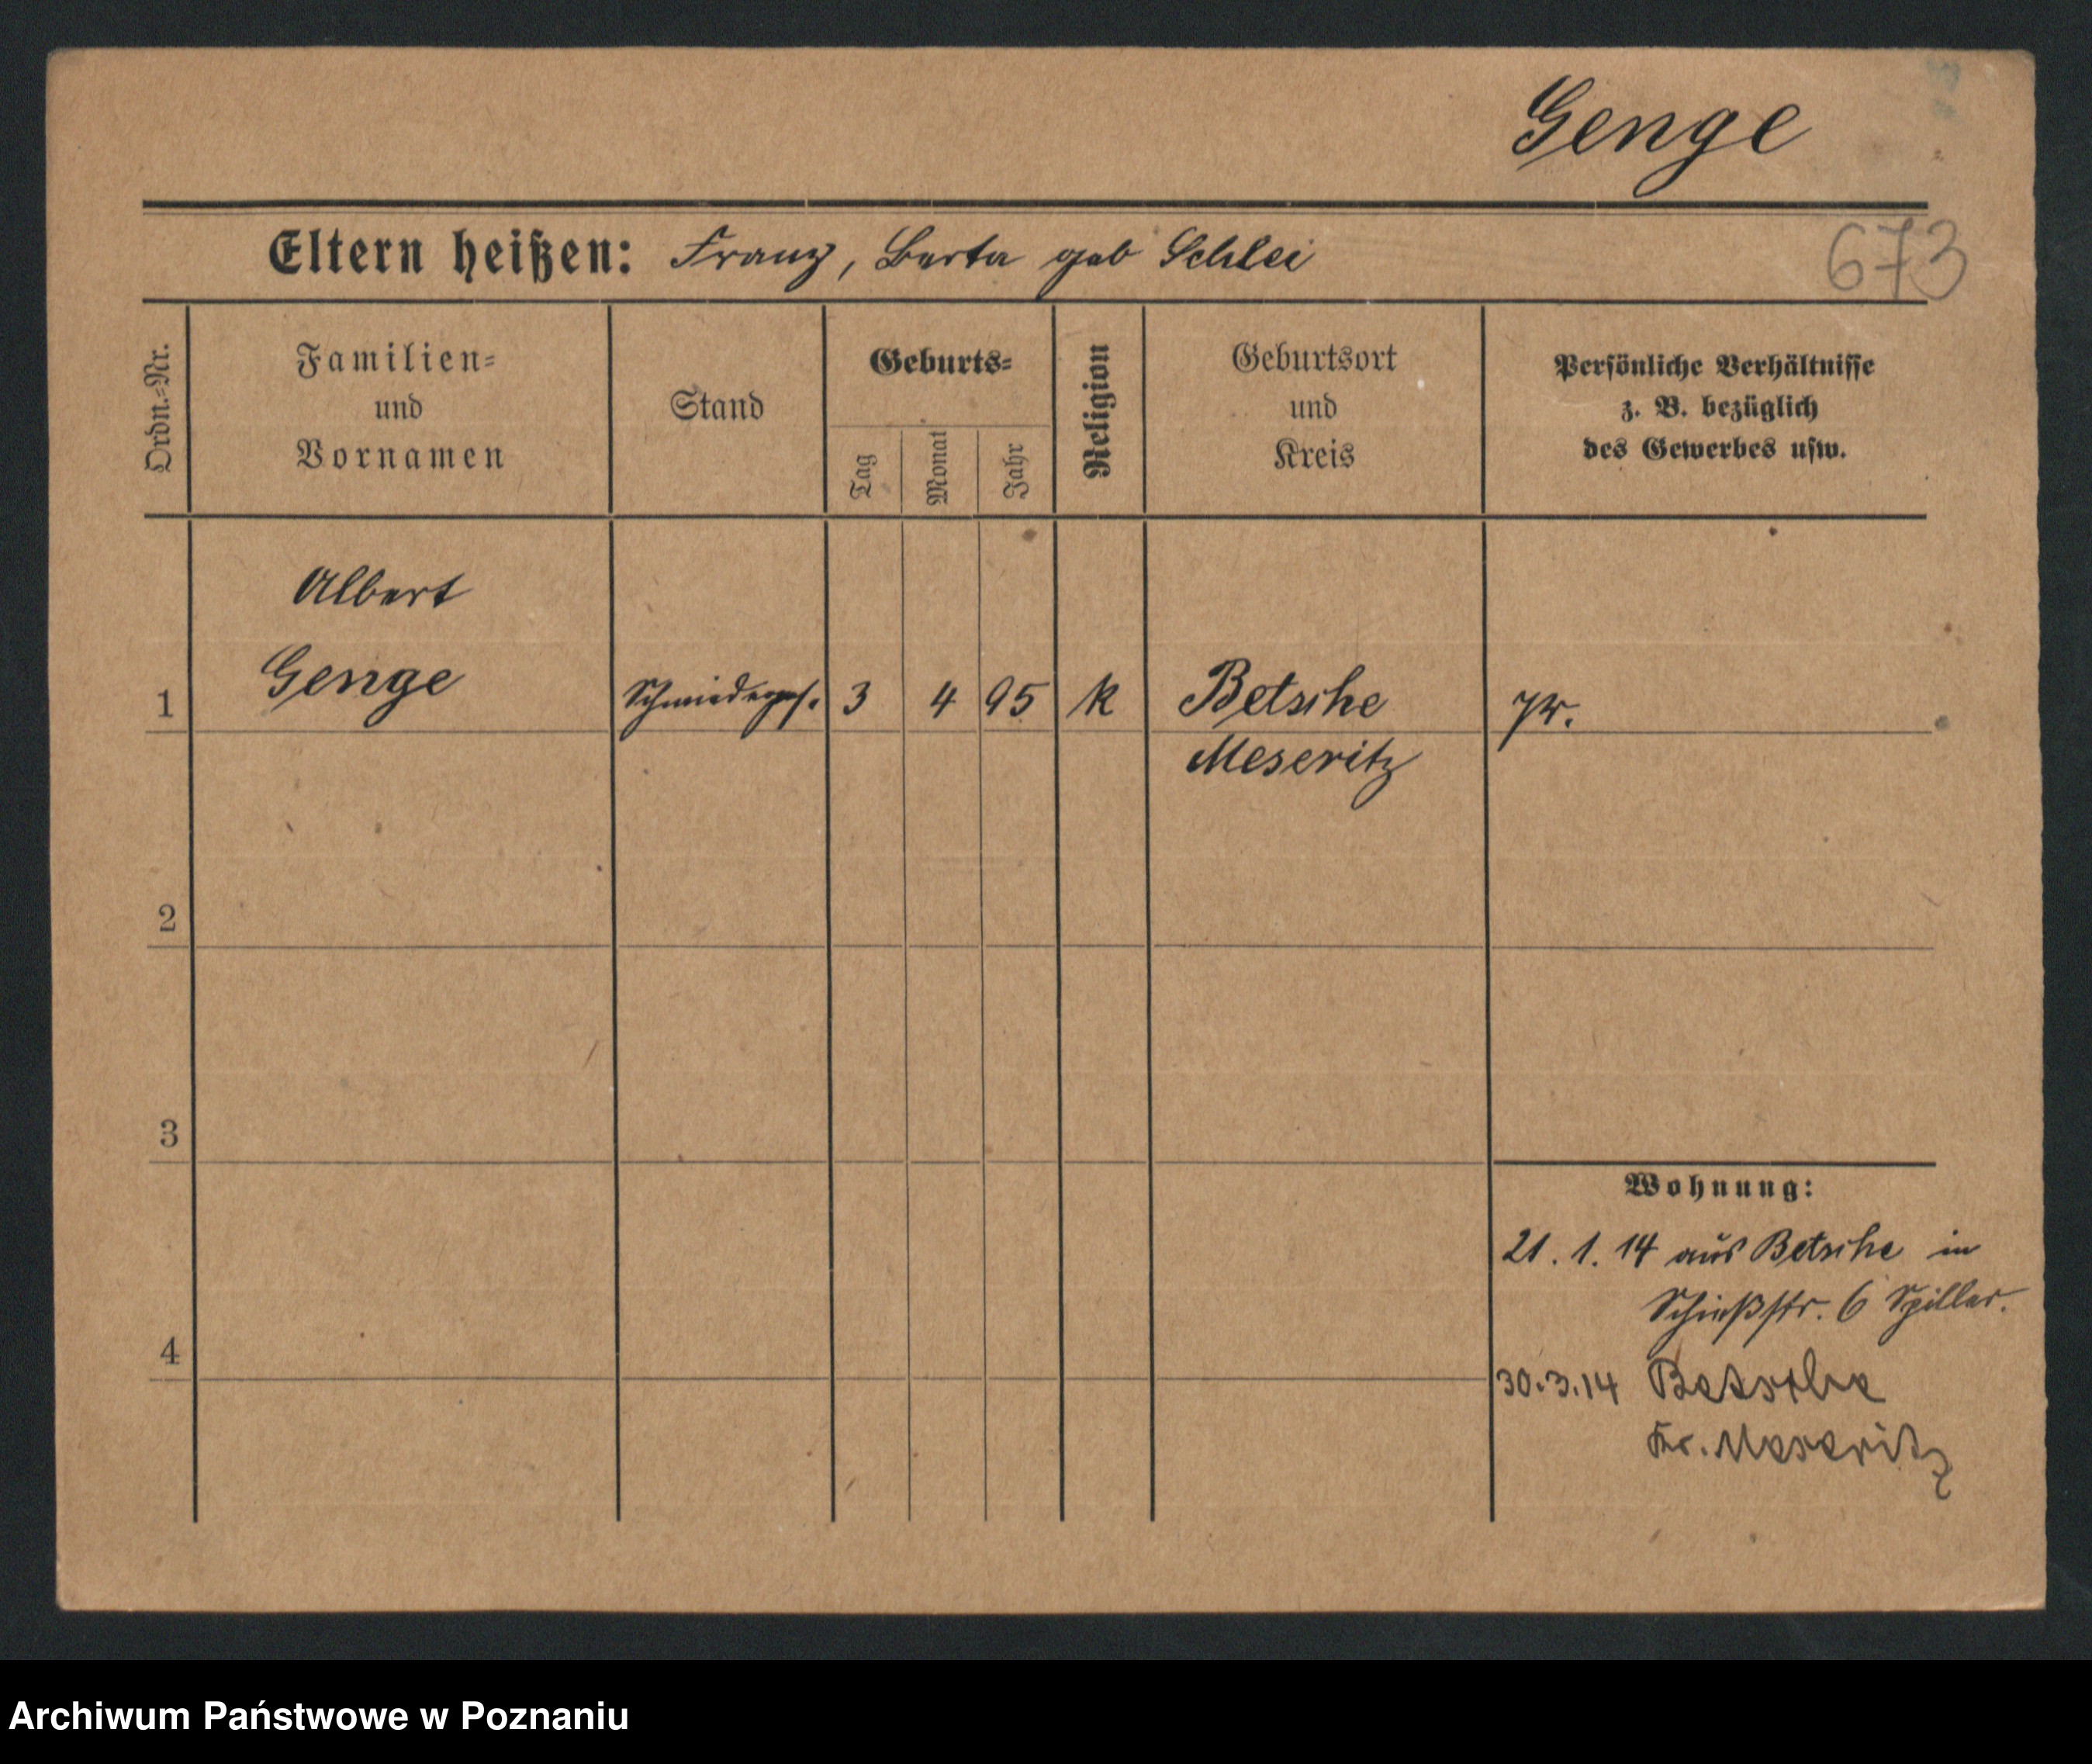 Genge
Eltern heißen: Franz, Berta geb Schlei
673
Ordn.-Nr.
Familien-
und
Vornamen
Stand
Geburts-
Tag
Monat
Jahr
Religion
Geburtsort
und
Kreis
Persönliche Verhältnisse
z. B. bezüglich
des Gewerbes usw.
Albert
1 Genge Schmiedeges. 3 4 95 k Betsche
Meseritz
2
3
Wohnung:
21. 1. 14 aus Betsche in
Schießstr. 6 Spiller.
4
30.3.14 Betsche
Kr. Meseritz
Archiwum Państwowe w Poznaniu